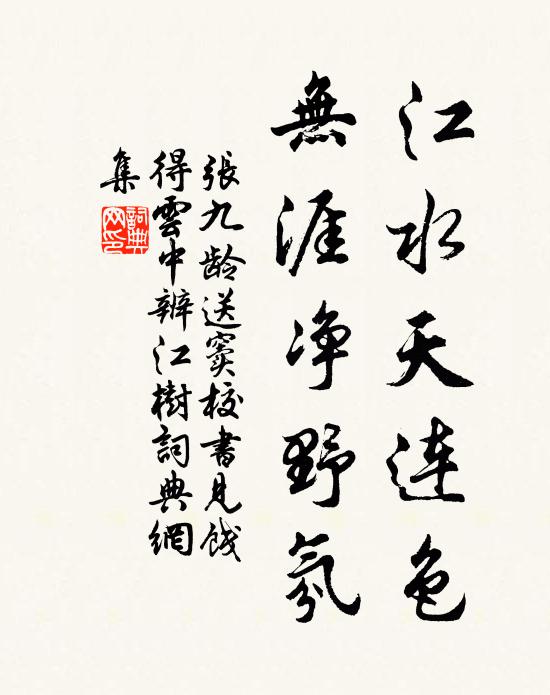 江水天連色
無涯净野氛
張九龄送窦校書見餞
得雲中辨江樹詞典網
集
詞典網印